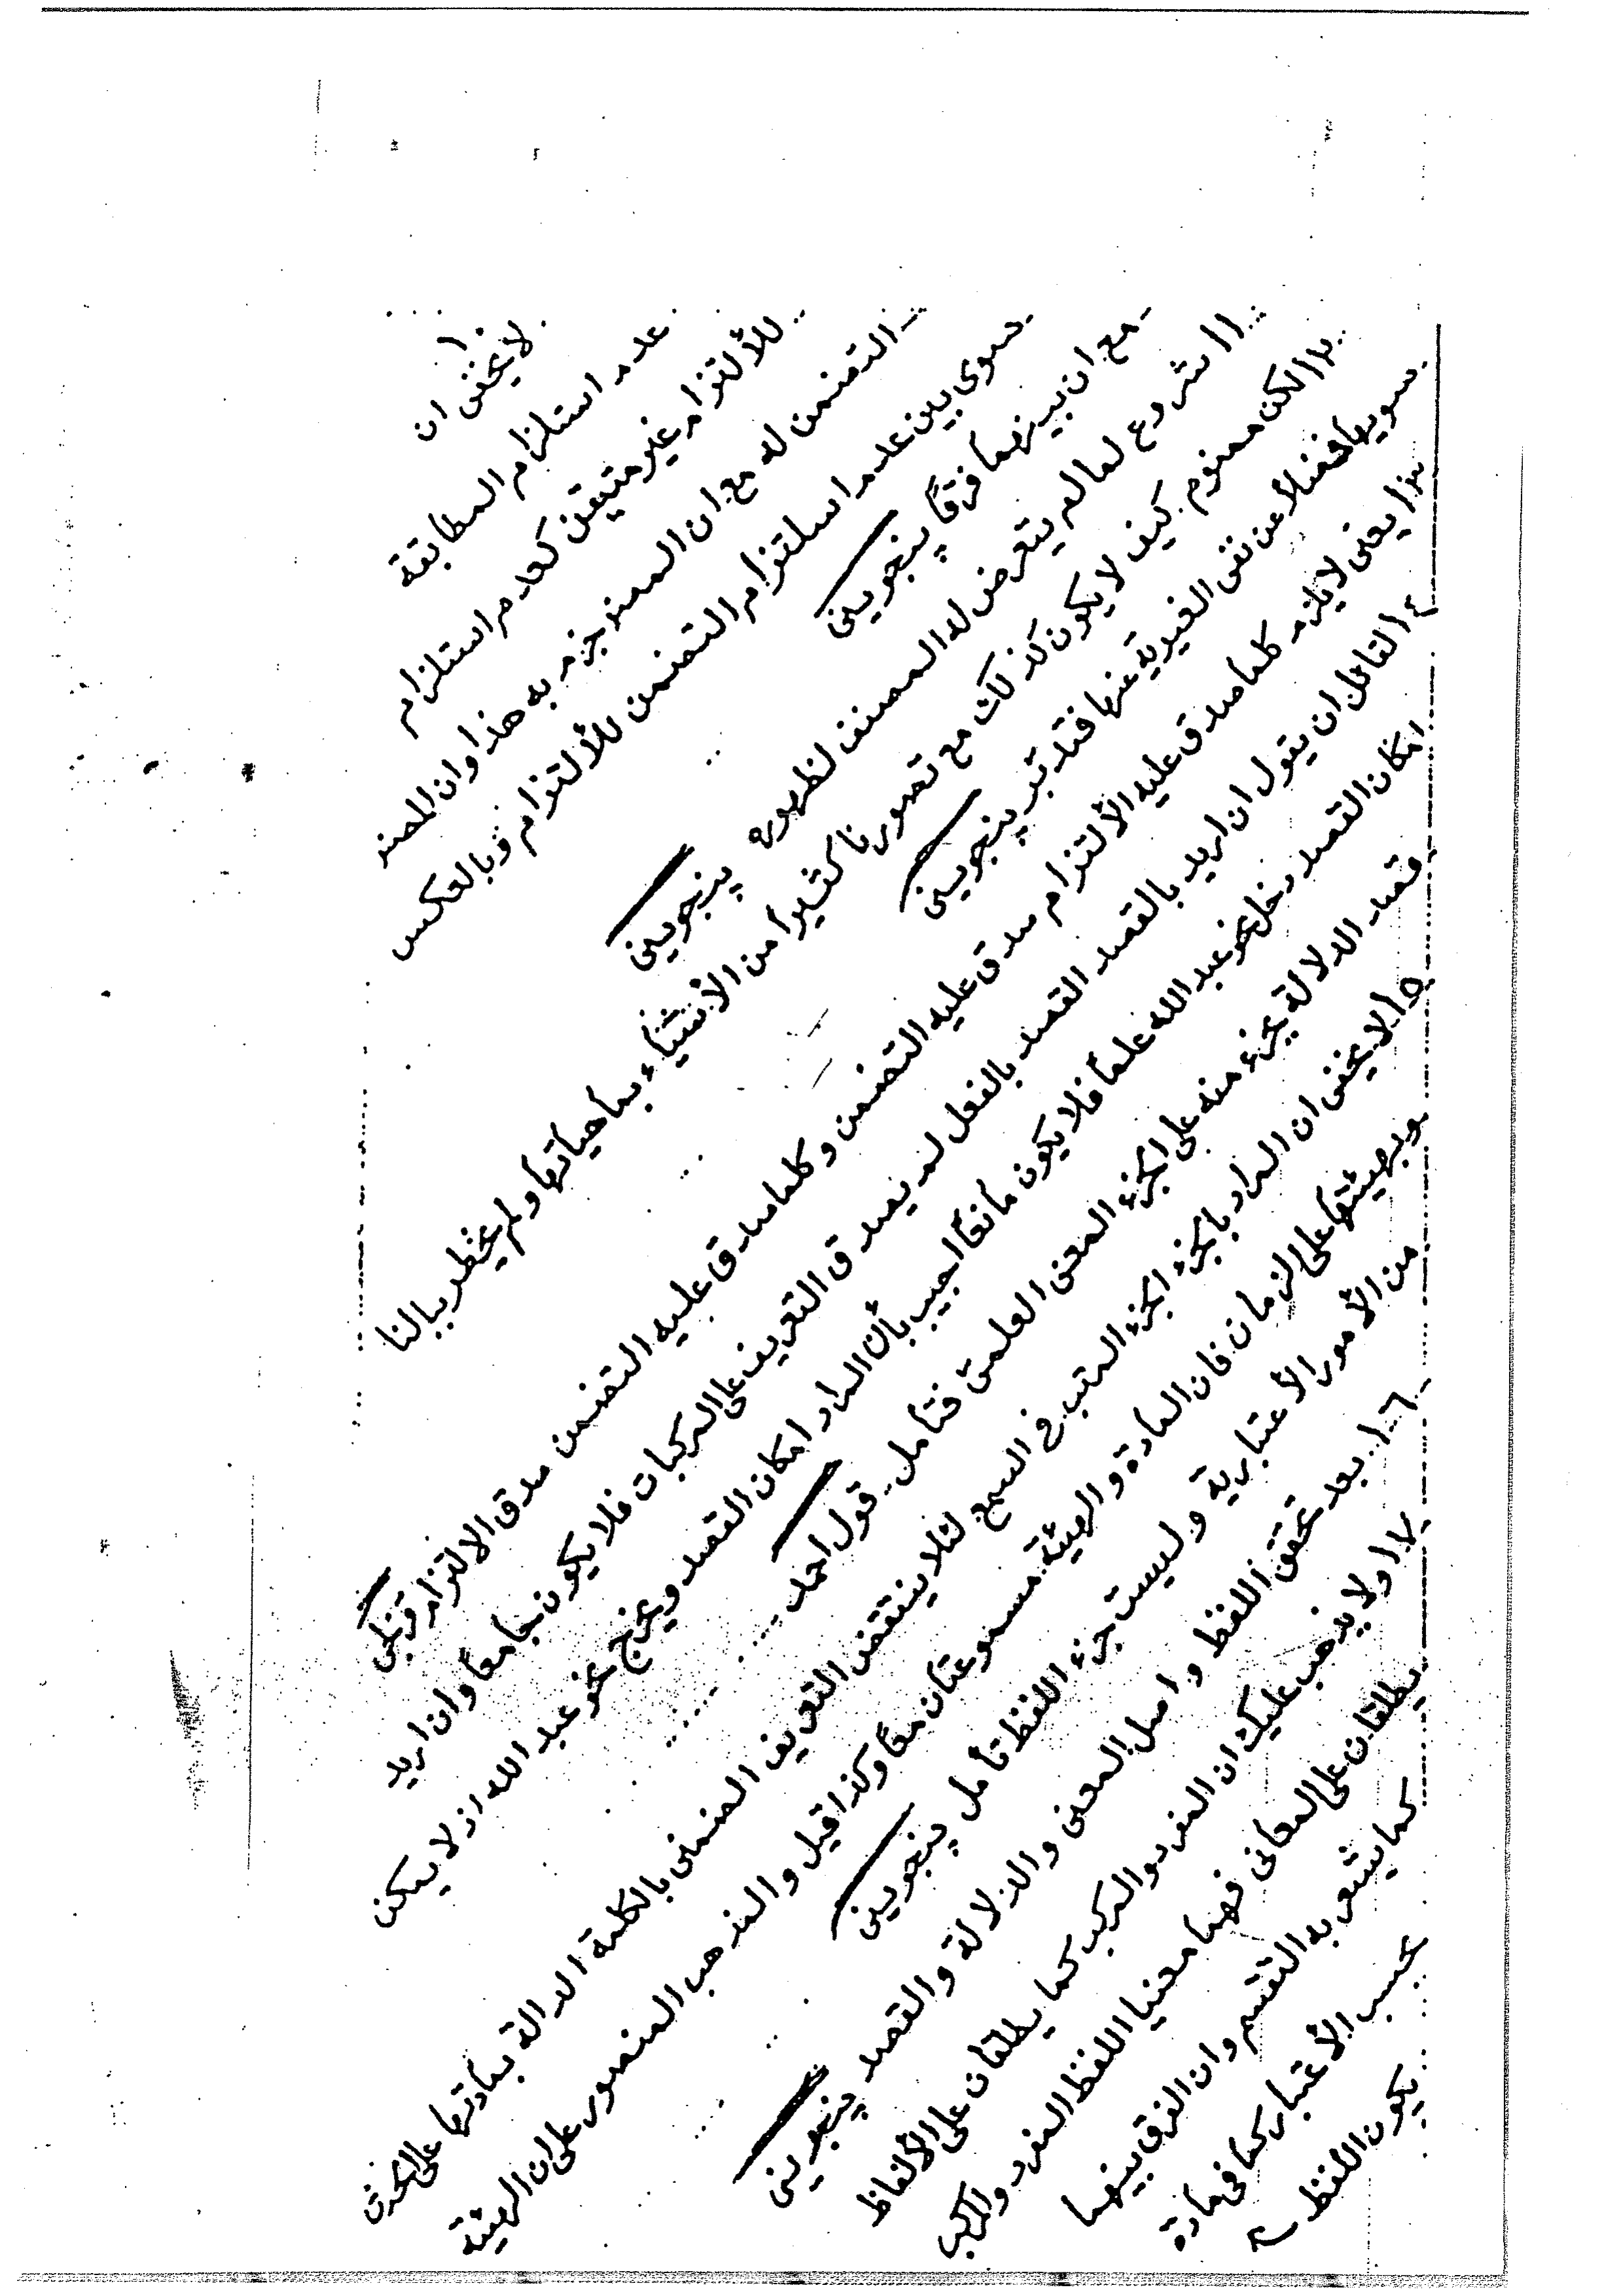 ١٠ لا يخفى ان
عدم استلزام المطابقة
للألتزام غير متيقن كعدم استلزام
التضمن له مع ان المصنف جزم به هذا وان المصنف
سوى بين عدم استلتزام التضمن للألتزام وبالعكس
مع ان بينهما فرقًا پنجوينى
١١ شروع لما لم يتعرض له المصنف لظهوره پنجوينى
لكن ممنوع كيف لا يكون كذلك مع تصورنا كثيرا من الأشياء بماهياتها ولم يخطر ببالنا
سويها فضلًا عن نفى الغيرية عنها فتدبر پنجوينى
يعنى لا يلزم كلما صدق عليه الألتزام صدق عليه التضمن وكلما صدق عليه التضمن صدق الالتزام قزلجى
١٤ لقائل ان يقول ان اريد بالقصد القصد بالفعل لم يصدق التعريف على المركبات فلا يكون جامعًا وان اريد
امكان القصد دخل نحو عبد الله علمًا فلا يكون مانعًا اجيب بأن المراد امكان القصد ويخرج نحو عبد الله اذ لا يمكن
قصد الدلالة بجزء منه على الجزء المعنى العلمى فتأمل قول احمد
١٥ لا يخفى ان المراد بالجزء الجزء المرتب فى السمع لئلا ينتقض التعريف الضمنى بالكلمة الدالة بمادتها على الحدث
وبهيئتها على الزمان فان المادة والهيئة مسموعتان معًا وكذا قيل والمذهب المنصور على ان الهيئة
من الأمور الأعتبارية وليست جزء اللفظ تأمل پنجوينى
١٦ بعد تحقق اللفظ واصل المعنى والدلالة والقصد پنجوينى
١٧ ولا يذهب عليك ان المفرد والمركب كما يطلقان على الألفاظ
يطلقان على المعانى فهما معنيا اللفظ المفرد والمركب
كما يشعر به التقسيم وان الفرق بينهما
بحسب الأعتبار كما فى مادة
يكون اللفظ